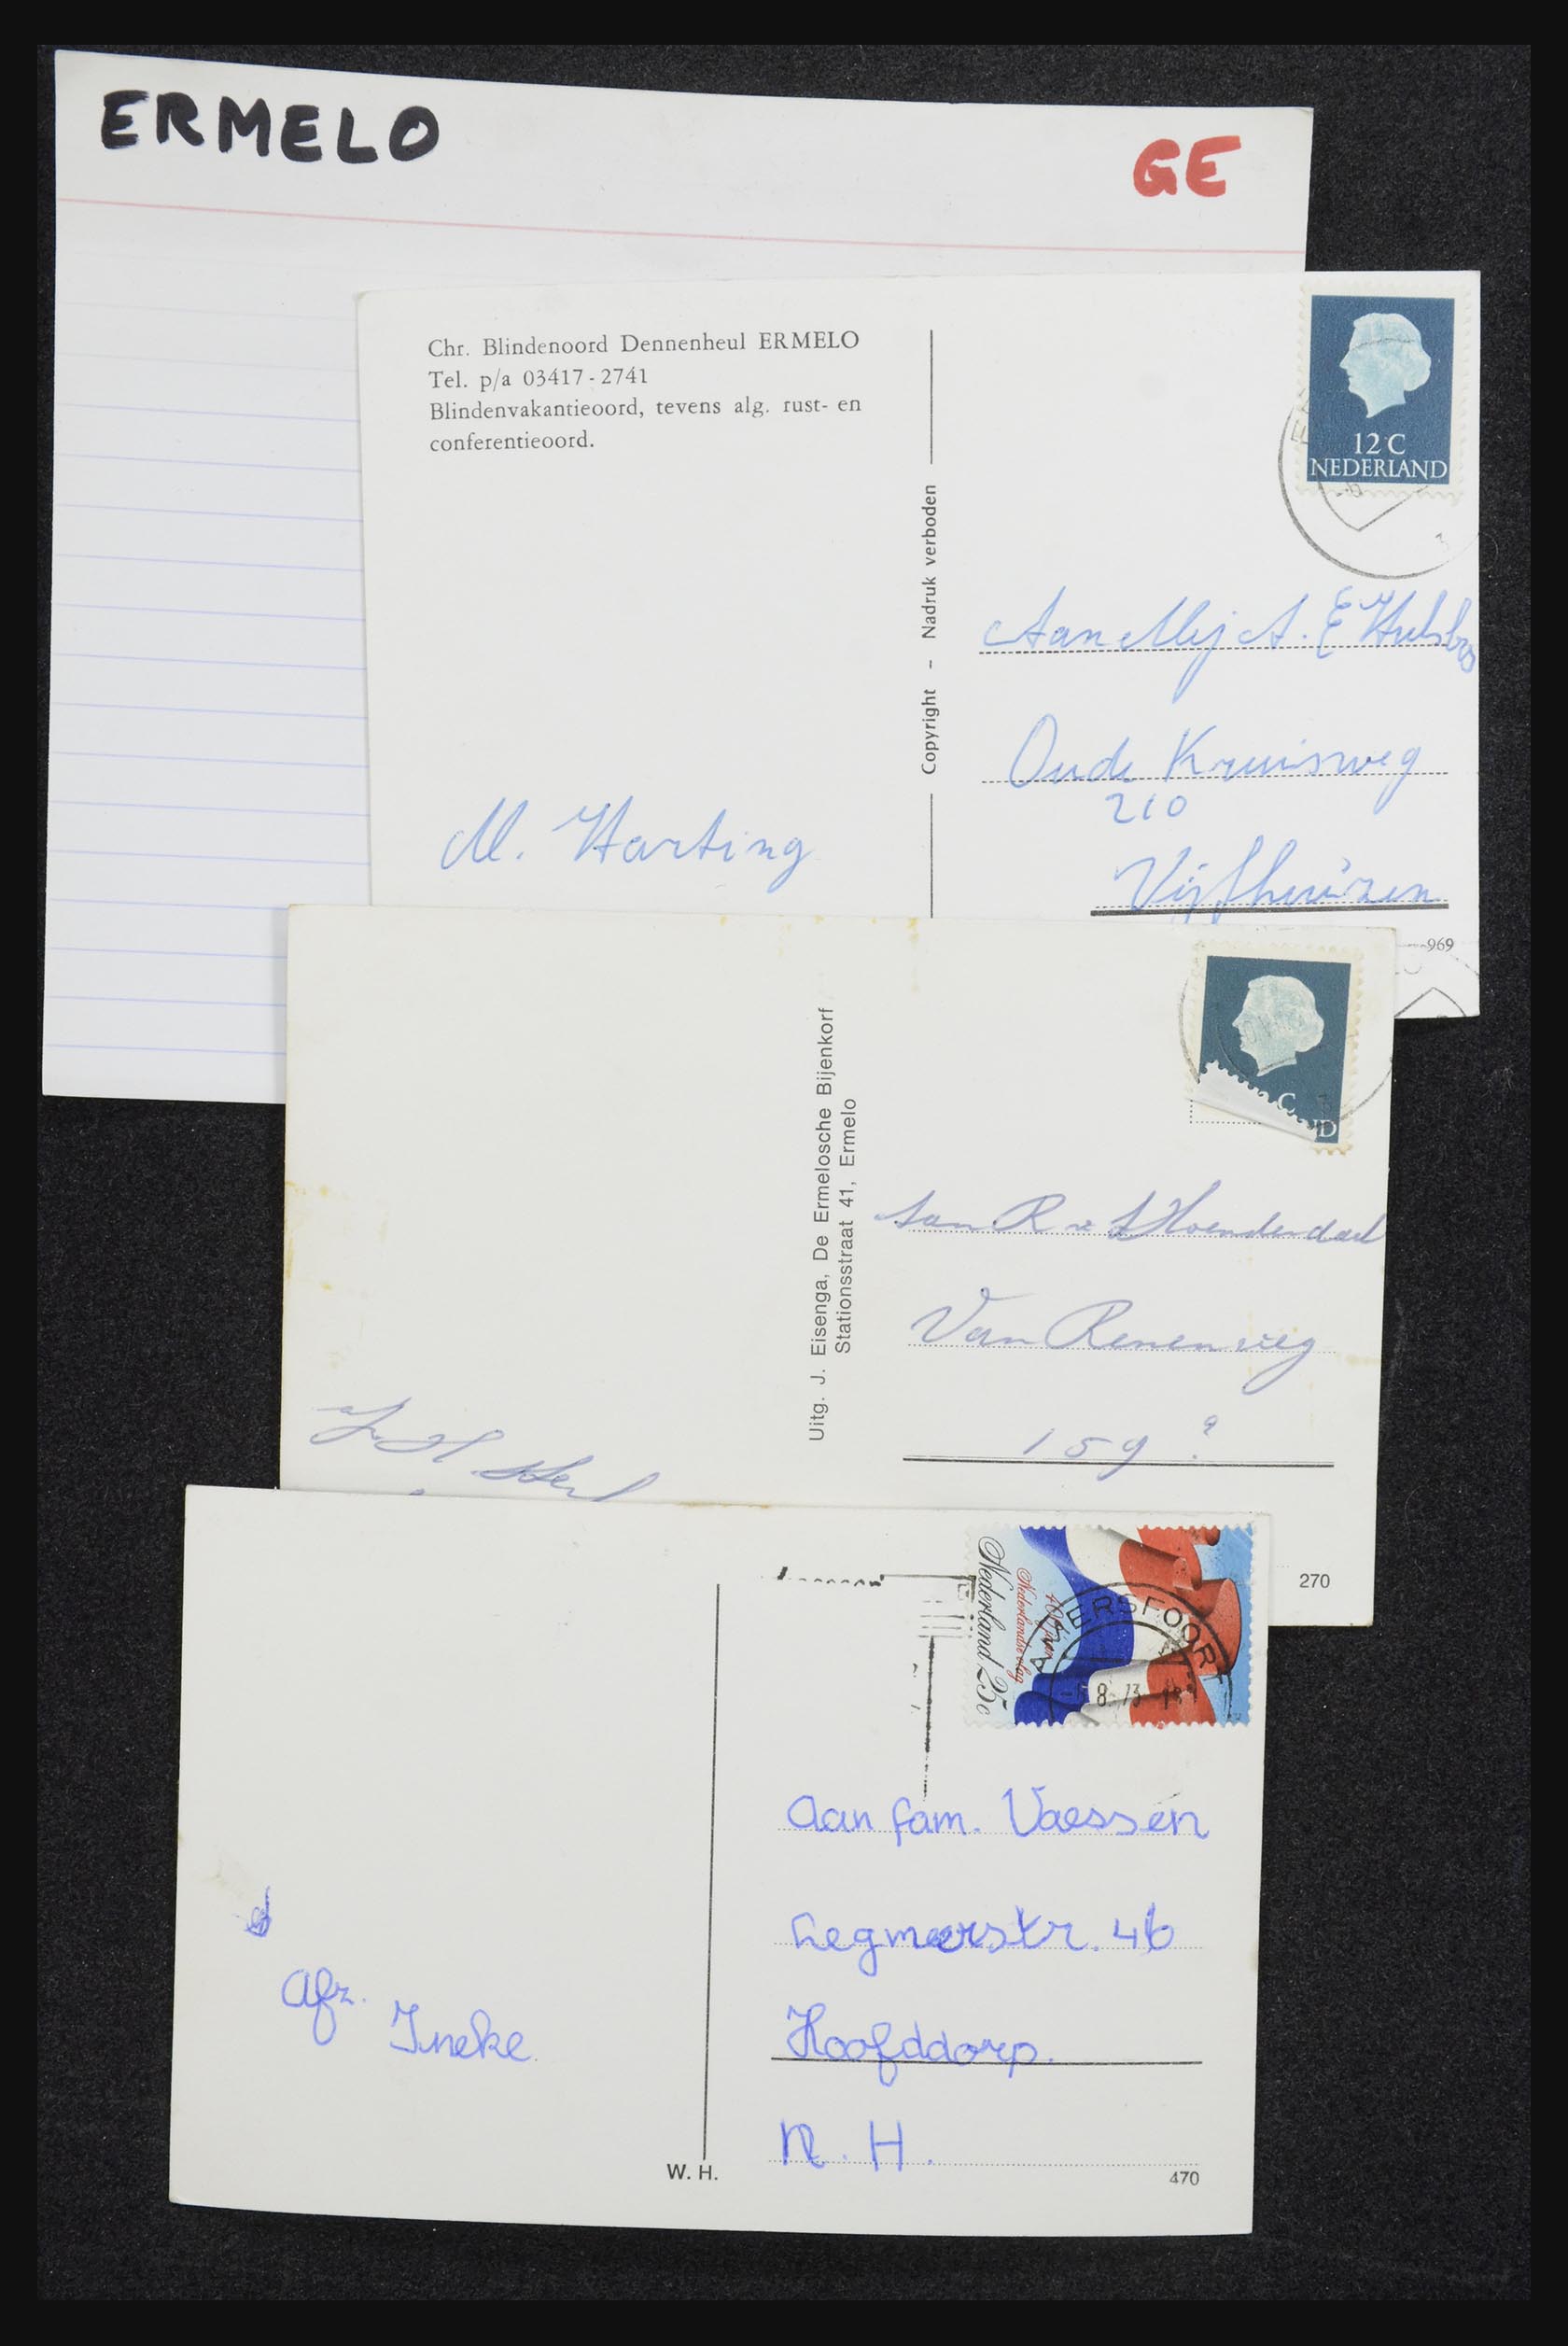 ERMELO
GE
Chr. Blindenoord Dennenheul ERMELO
Tel. p/a 03417-2741
Blindenvakantieoord, tevens alg. rust- en
conferentieoord.
Copyright – Nadruk verboden
12 C
NEDERLAND
Aan Mej A. E
Oude Kruisweg
210
Vijfhuizen
M. Harting
969
Uitg. J. Eisenga, De Ermelosche Bijenkorf
Stationsstraat 41, Ermelo
C
ND
Aan R
Van Renenweg
159?
270
Nederland 25c
400 jaar
Nederlandse vlag
AMERSFOORT
8.73
Aan fam. Vaessen
Legmeerstr. 46
Hoofddorp.
N. H.
Afz.
Ineke.
W. H.
470